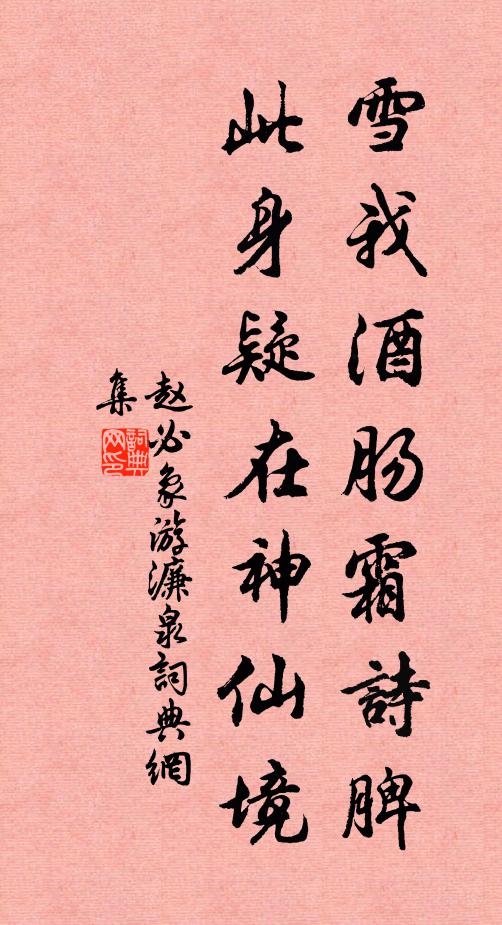 雪我酒肠霜詩脾
此身疑在神仙境
赵必象游濂泉詞典網
集
詞典
网印